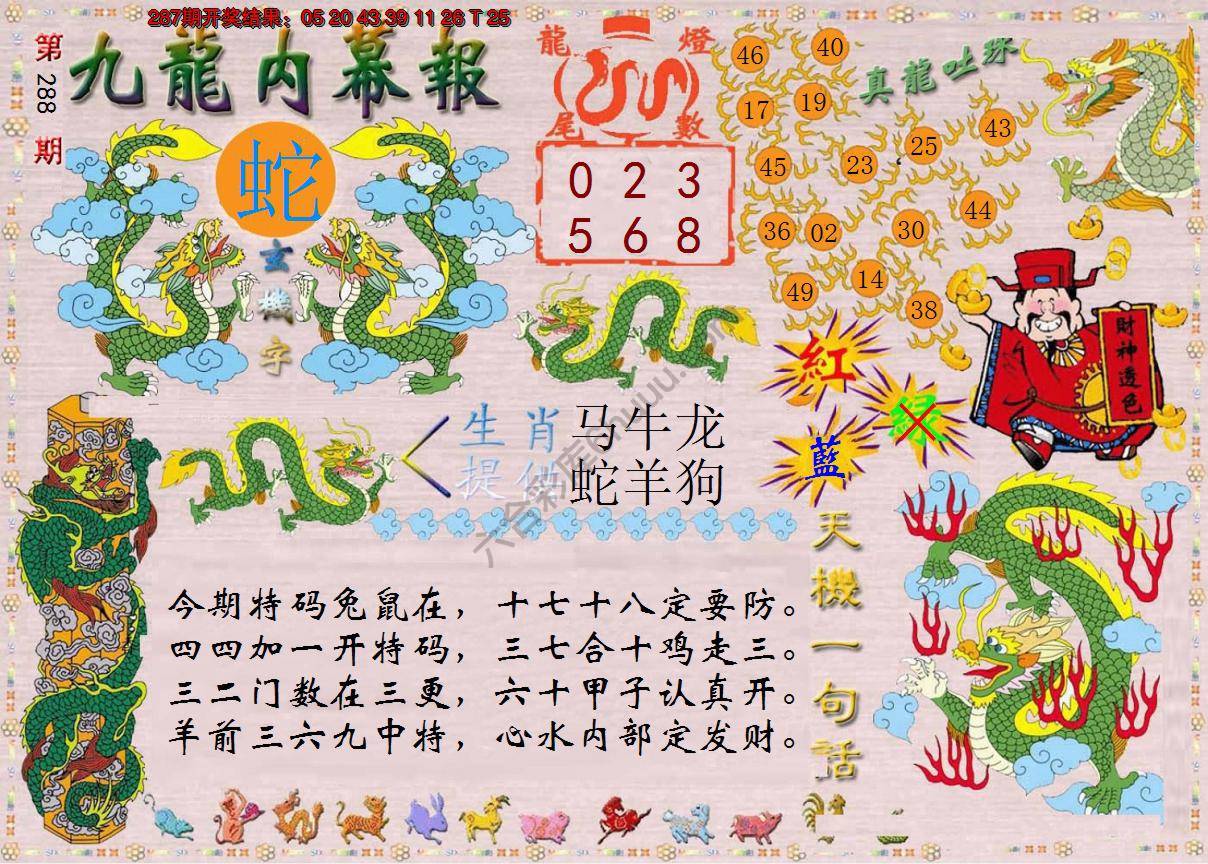 287期开奖结果：05 20 43 39 11 26 T 25
第288期
九龍内幕報
蛇
玄機字
龍燈
尾數
0 2 3
5 6 8
真龍吐珠
46 40
17 19
45 23 25 43
36 02 30 44
49 14 38
紅
绿
藍
財神透色
生肖 马牛龙
提供 蛇羊狗
天機一句話
今期特码兔鼠在，十七十八定要防。
四四加一开特码，三七合十鸡走三。
三二门数在三更，六十甲子认真开。
羊前三六九中特，心水内部定发财。